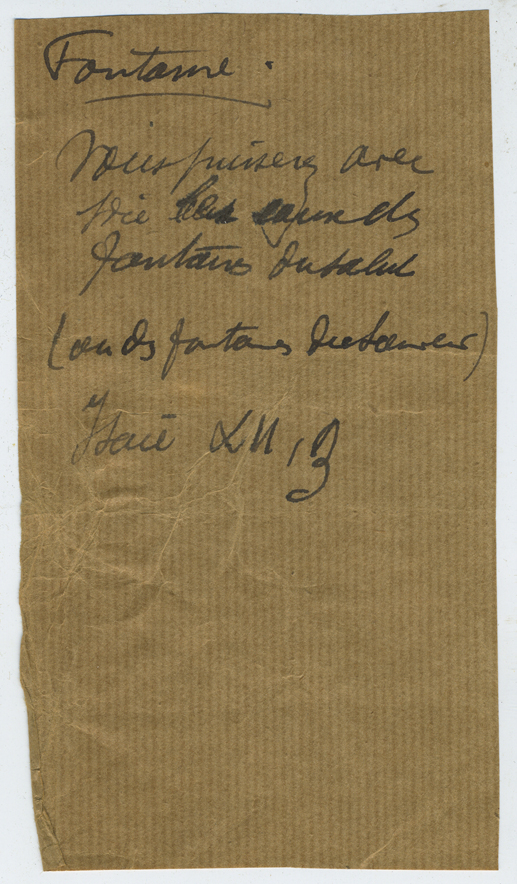 Fontaine.
Vous puiserez avec
joie les eaux des
fontaines du salut
(ou des fontaines du Sauveur)
Isaïe XII, 3